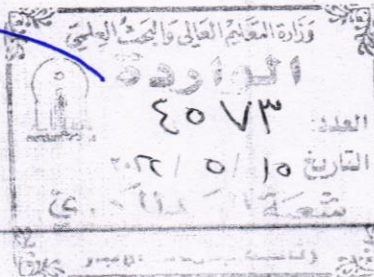 وزارة التعليم العالي والبحث العلمي
الواردة
العدد: ٤٥٧٣
التاريخ ١٥ / ٥ / ٢٠٢٢
شعبة